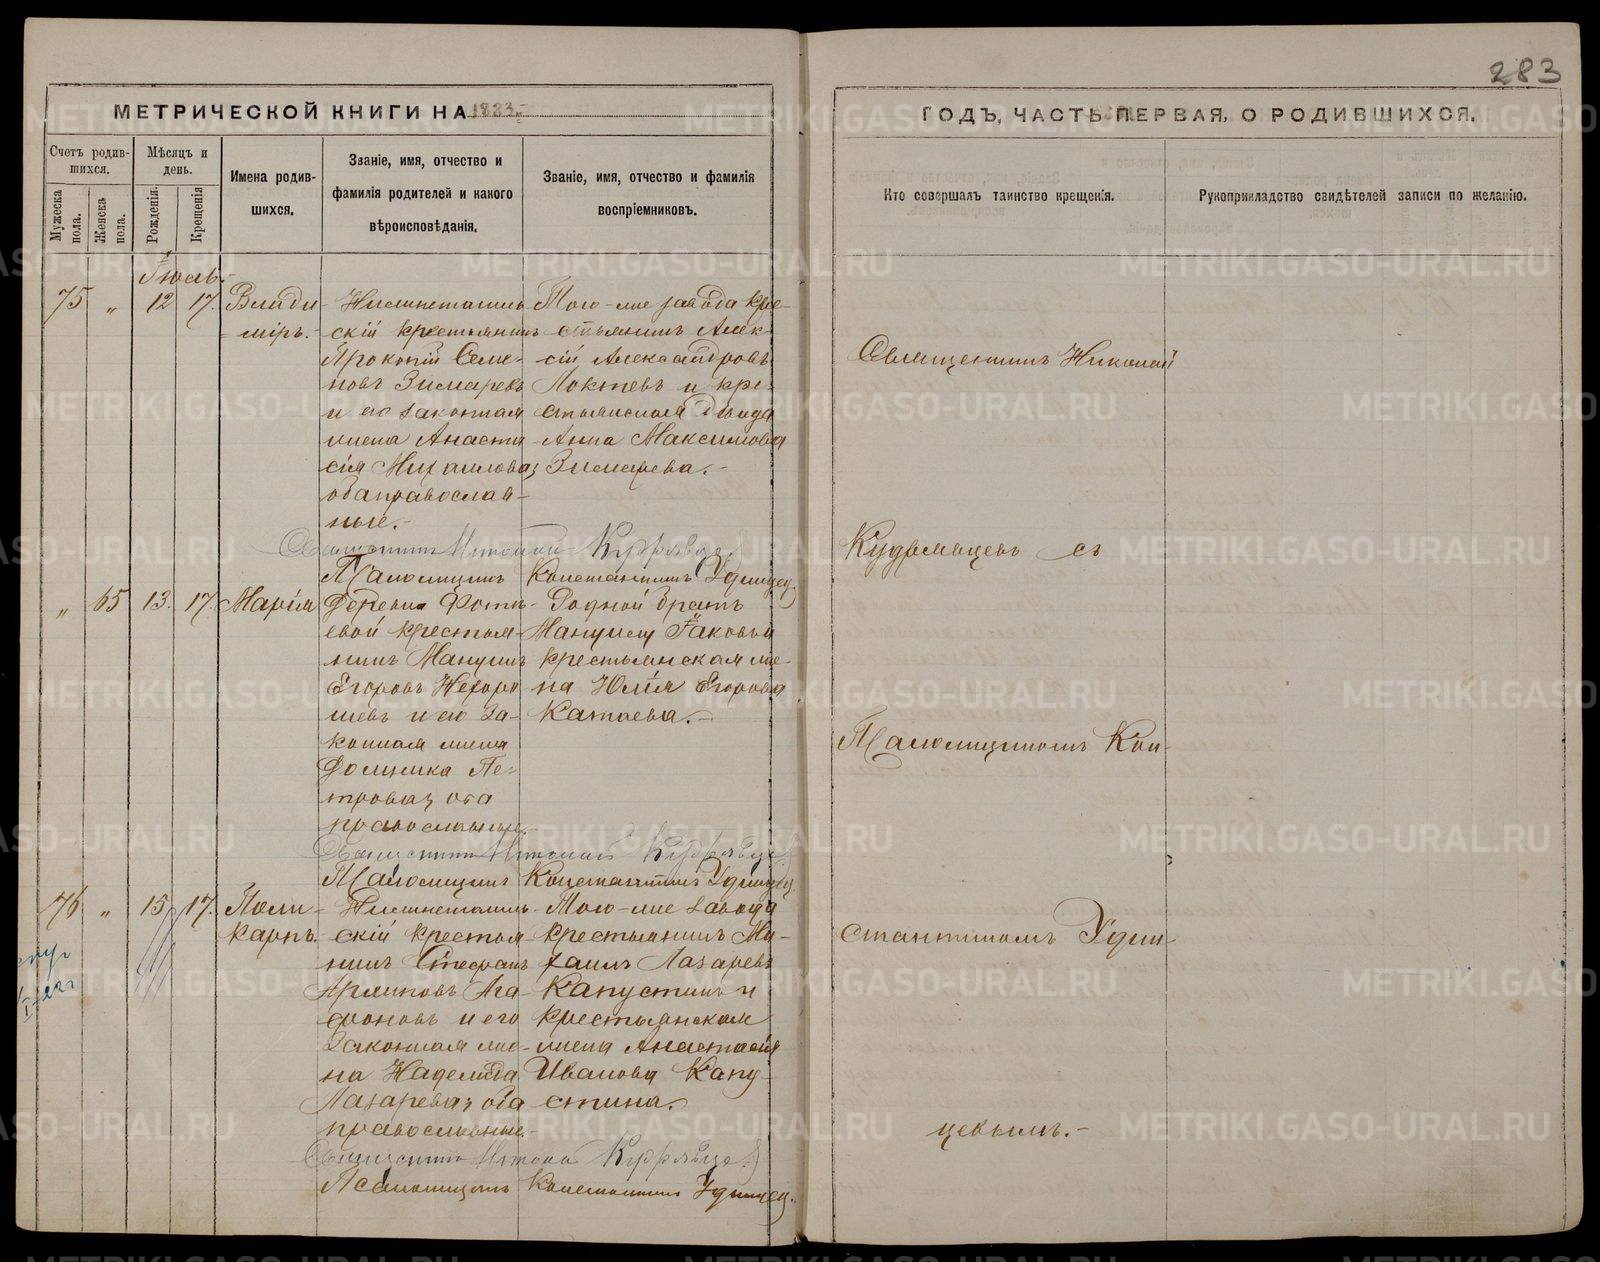 283
МЕТРИЧЕСКОЙ КНИГИ НА 1883
ГОДЪ, ЧАСТЬ ПЕРВАЯ, О РОДИВШИХСЯ.
Счетъ родив-
шихся.
Мужеска пола.
Женска пола.
Мѣсяцъ и
день.
Рожденія.
Крещенія
Имена родив-
шихся.
Званіе, имя, отчество и
фамилія родителей и какого
вѣроисповѣданія.
Званіе, имя, отчество и фамилія
воспріемниковъ.
Кто совершалъ таинство крещенія.
Рукоприкладство свидѣтелей записи по желанію.
Іюль.
75 " 12 17.
Влади-
міръ.
Нижнетагиль-
скій крестьянинъ
Прокопій Семе-
новъ Зимаревъ
и его законная
жена Анаста-
сія Михаилова,
оба православ-
ные.
Того-же завода кре-
стьянинъ Алек-
сій Александровъ
Локтевъ и кре-
стьянская дѣвица
Анна Максимова
Зимарева.
Священникъ Николай Кудрявцевъ
Псаломщикъ Константинъ Удинцев
" 65 13. 17.
Марія
Деревни Фоть-
евой крестья-
нинъ Мануилъ
Егоровъ Нехоро
шевъ и его за-
конная жена
Домника Пе-
трова, оба
православные.
Родной братъ
Мануилу Іаковъ и
крестьянская же-
на Юлія Егорова
Катаева.
Священникъ Николай Кудрявцев
Псаломщикъ Константинъ Удинцев
76 " 15 17.
Поли-
карпъ.
Нижнетагиль-
скій крестья-
нинъ Стефанъ
Ага-
фоновъ и его
законная же-
на Надежда
Лазарева, оба
православные.
Того-же завода
крестьянинъ Ми-
хаилъ Лазаревъ
Капустинъ и
крестьянская
жена Анастасія
Иванова Капу-
стина.
Священникъ Николай Кудрявцев
Псаломщикъ Константинъ Удинцев.
Священникъ Николай
Кудрявцевъ съ
Псаломщикомъ Кон-
стантиномъ Удин-
цевымъ.
METRIKI.GASO-URAL.RU